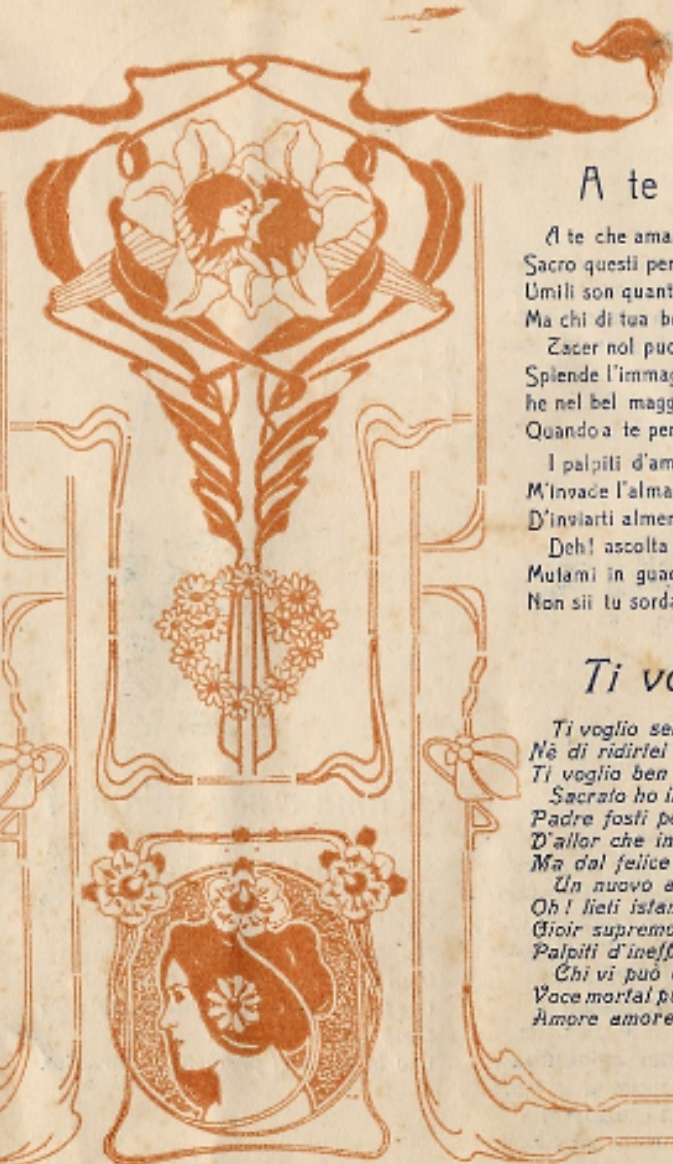 A te
A te che ama
Sacro questi per
Umili son quant
Ma chi di tua b
Tacer nol puo
Splende l'immag
he nel bel magg
Quando a te per
I palpiti d'am
M'invade l'alma
D'inviarti almer
Deh! ascolta
Mutami in guad
Non sii tu sorda
Ti vo
Ti voglio se
Nè di ridirtel
Ti voglio ben
Sacrato ho i
Padre fosti p
D'allor che in
Ma dal felice
Un nuovo a
Oh! lieti istan
Gioir supremo
Palpiti d'ineff
Chi vi può
Voce mortal p
Amore amore